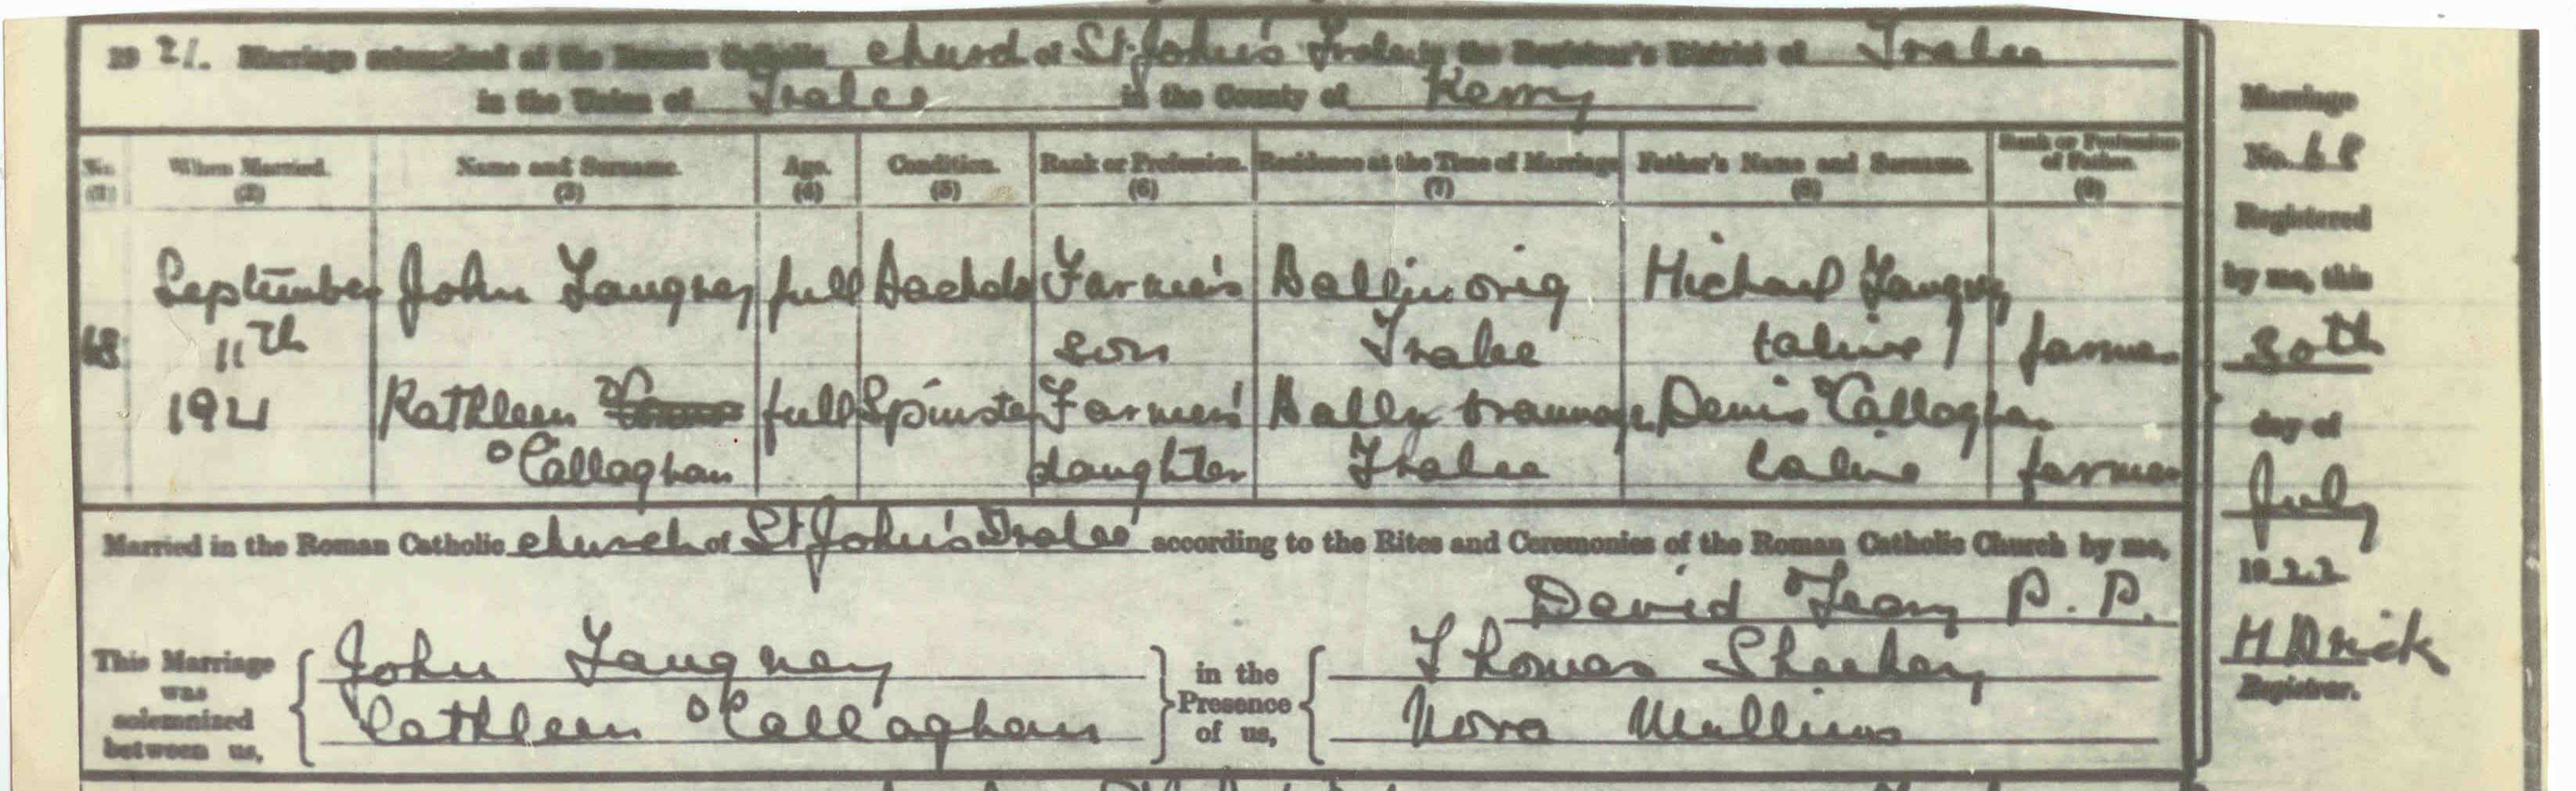 19 21. Marriage solemnized at the Roman Catholic church of St. John's Tralee in the Registrar's District of Tralee
in the Union of Tralee in the County of Kerry
No. (1) When Married. (2) Name and Surname. (3) Age. (4) Condition. (5) Rank or Profession. (6) Residence at the Time of Marriage (7) Father's Name and Surname. (8) Rank or Profession of Father. (9)
September John Tangney full Bachelo Farmer's Ballinorig Michael Tangney
68 11th son Tralee (alive) farmer
1921 Kathleen full Spinster Farmer's Bally Denis O'Callaghan
O'Callaghan daughter Tralee (alive) farmer
Married in the Roman Catholic church of St John's Tralee according to the Rites and Ceremonies of the Roman Catholic Church by me,
David O'Leary P.P.
This Marriage was solemnized between us,
John Tangney
Cathleen O'Callaghan
in the Presence of us,
Thomas Sheehy
Nora Mullins
Marriage
No. 68
Registered
by me, this
30th
day of
July
1922
Registrar.